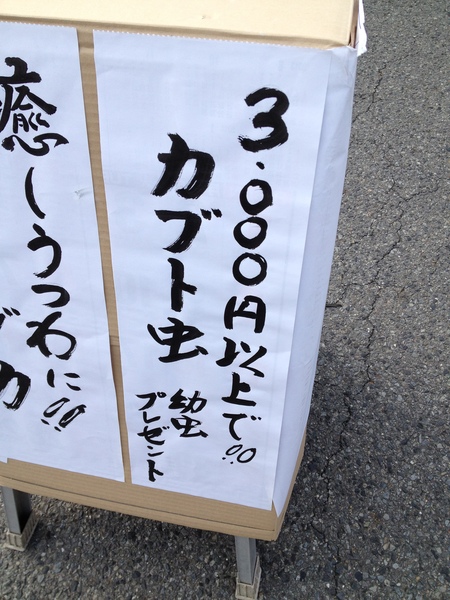 3.000円以上で!!
カブト虫
幼虫
プレゼント
癒しうつわに!!